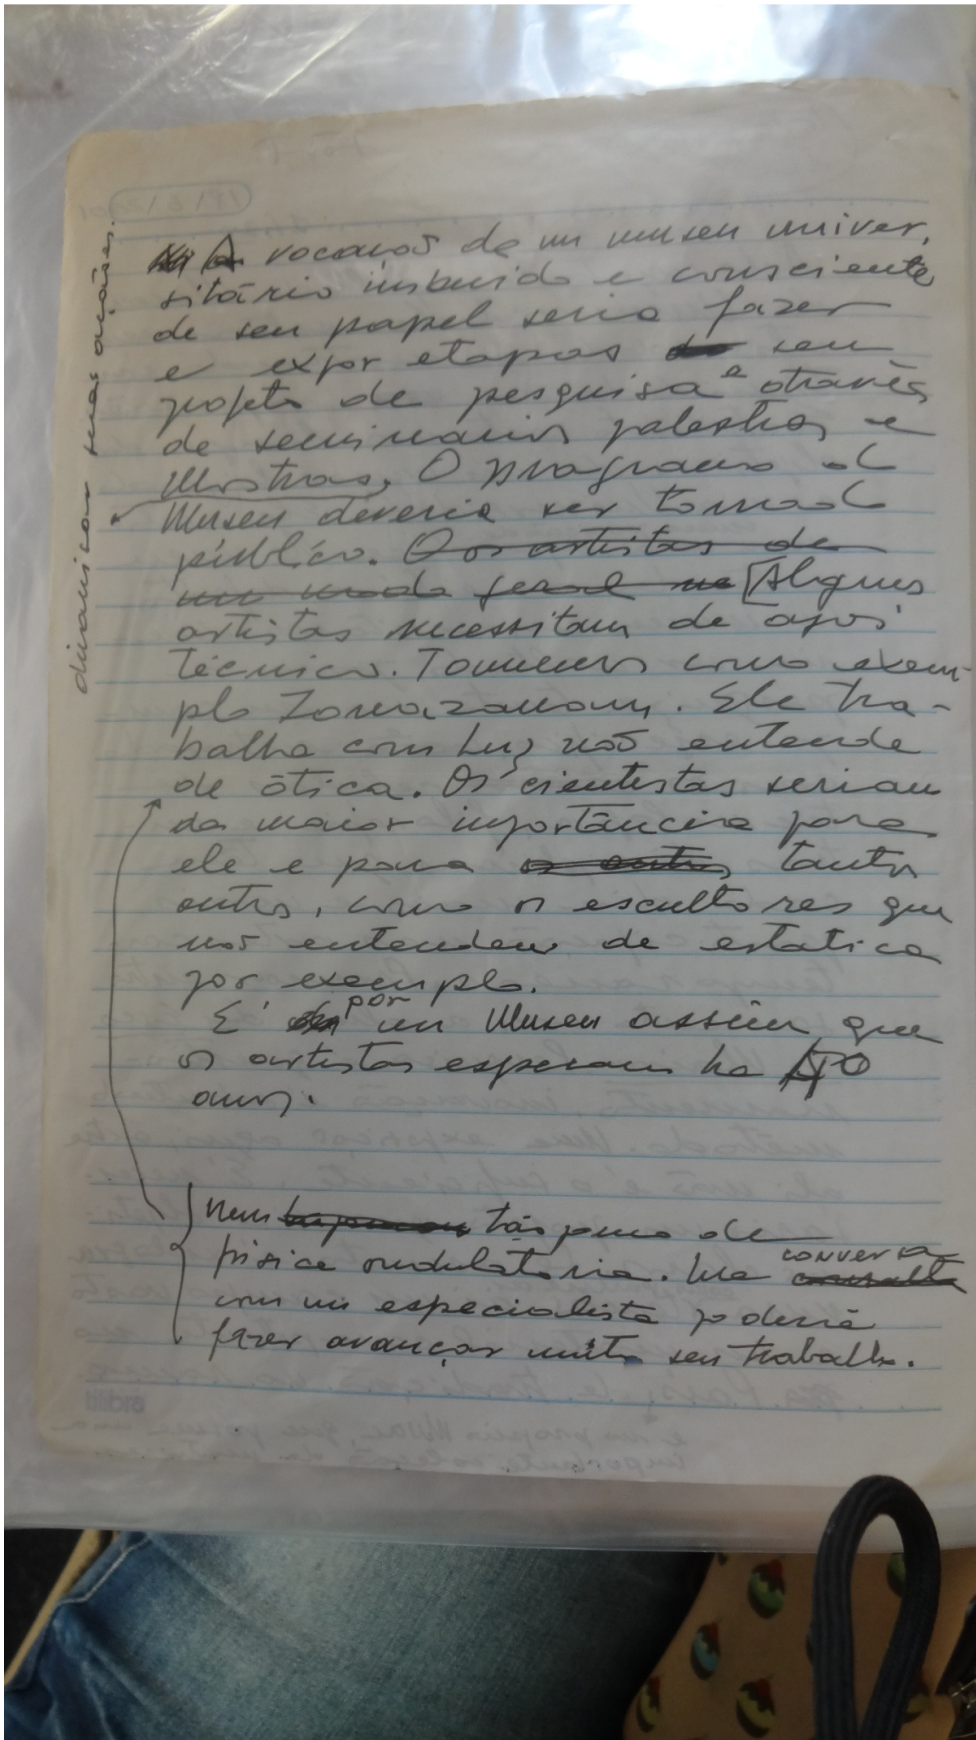 A vocação de um museu univer,
sitário imbuído e consciente
de seu papel seria fazer
e expor etapas seu
projeto de pesquisa e através
de seminarios palestras e
Mostras. O programa d
Museu deveria ser tornad
público. Os artistas de
um modo geral ne [Alguns
artistas necessitam de apoi
técnico. Tomemos como exem-
plo Ele tra-
balha com luz não entende
de ótica. Os cientistas seriam
da maior importância para
ele e para os outros tantos
outros, como os escultores que
não entendem de estatica
por exemplo.
É por um Museu assim que
os artistas esperam ha
anos.
Nem tão puco de
fisica ondulatoria. Uma conversa consulta
com um especialista poderia
fazer avançar muito seu trabalho.
dinamizar suas ações.
tilibra